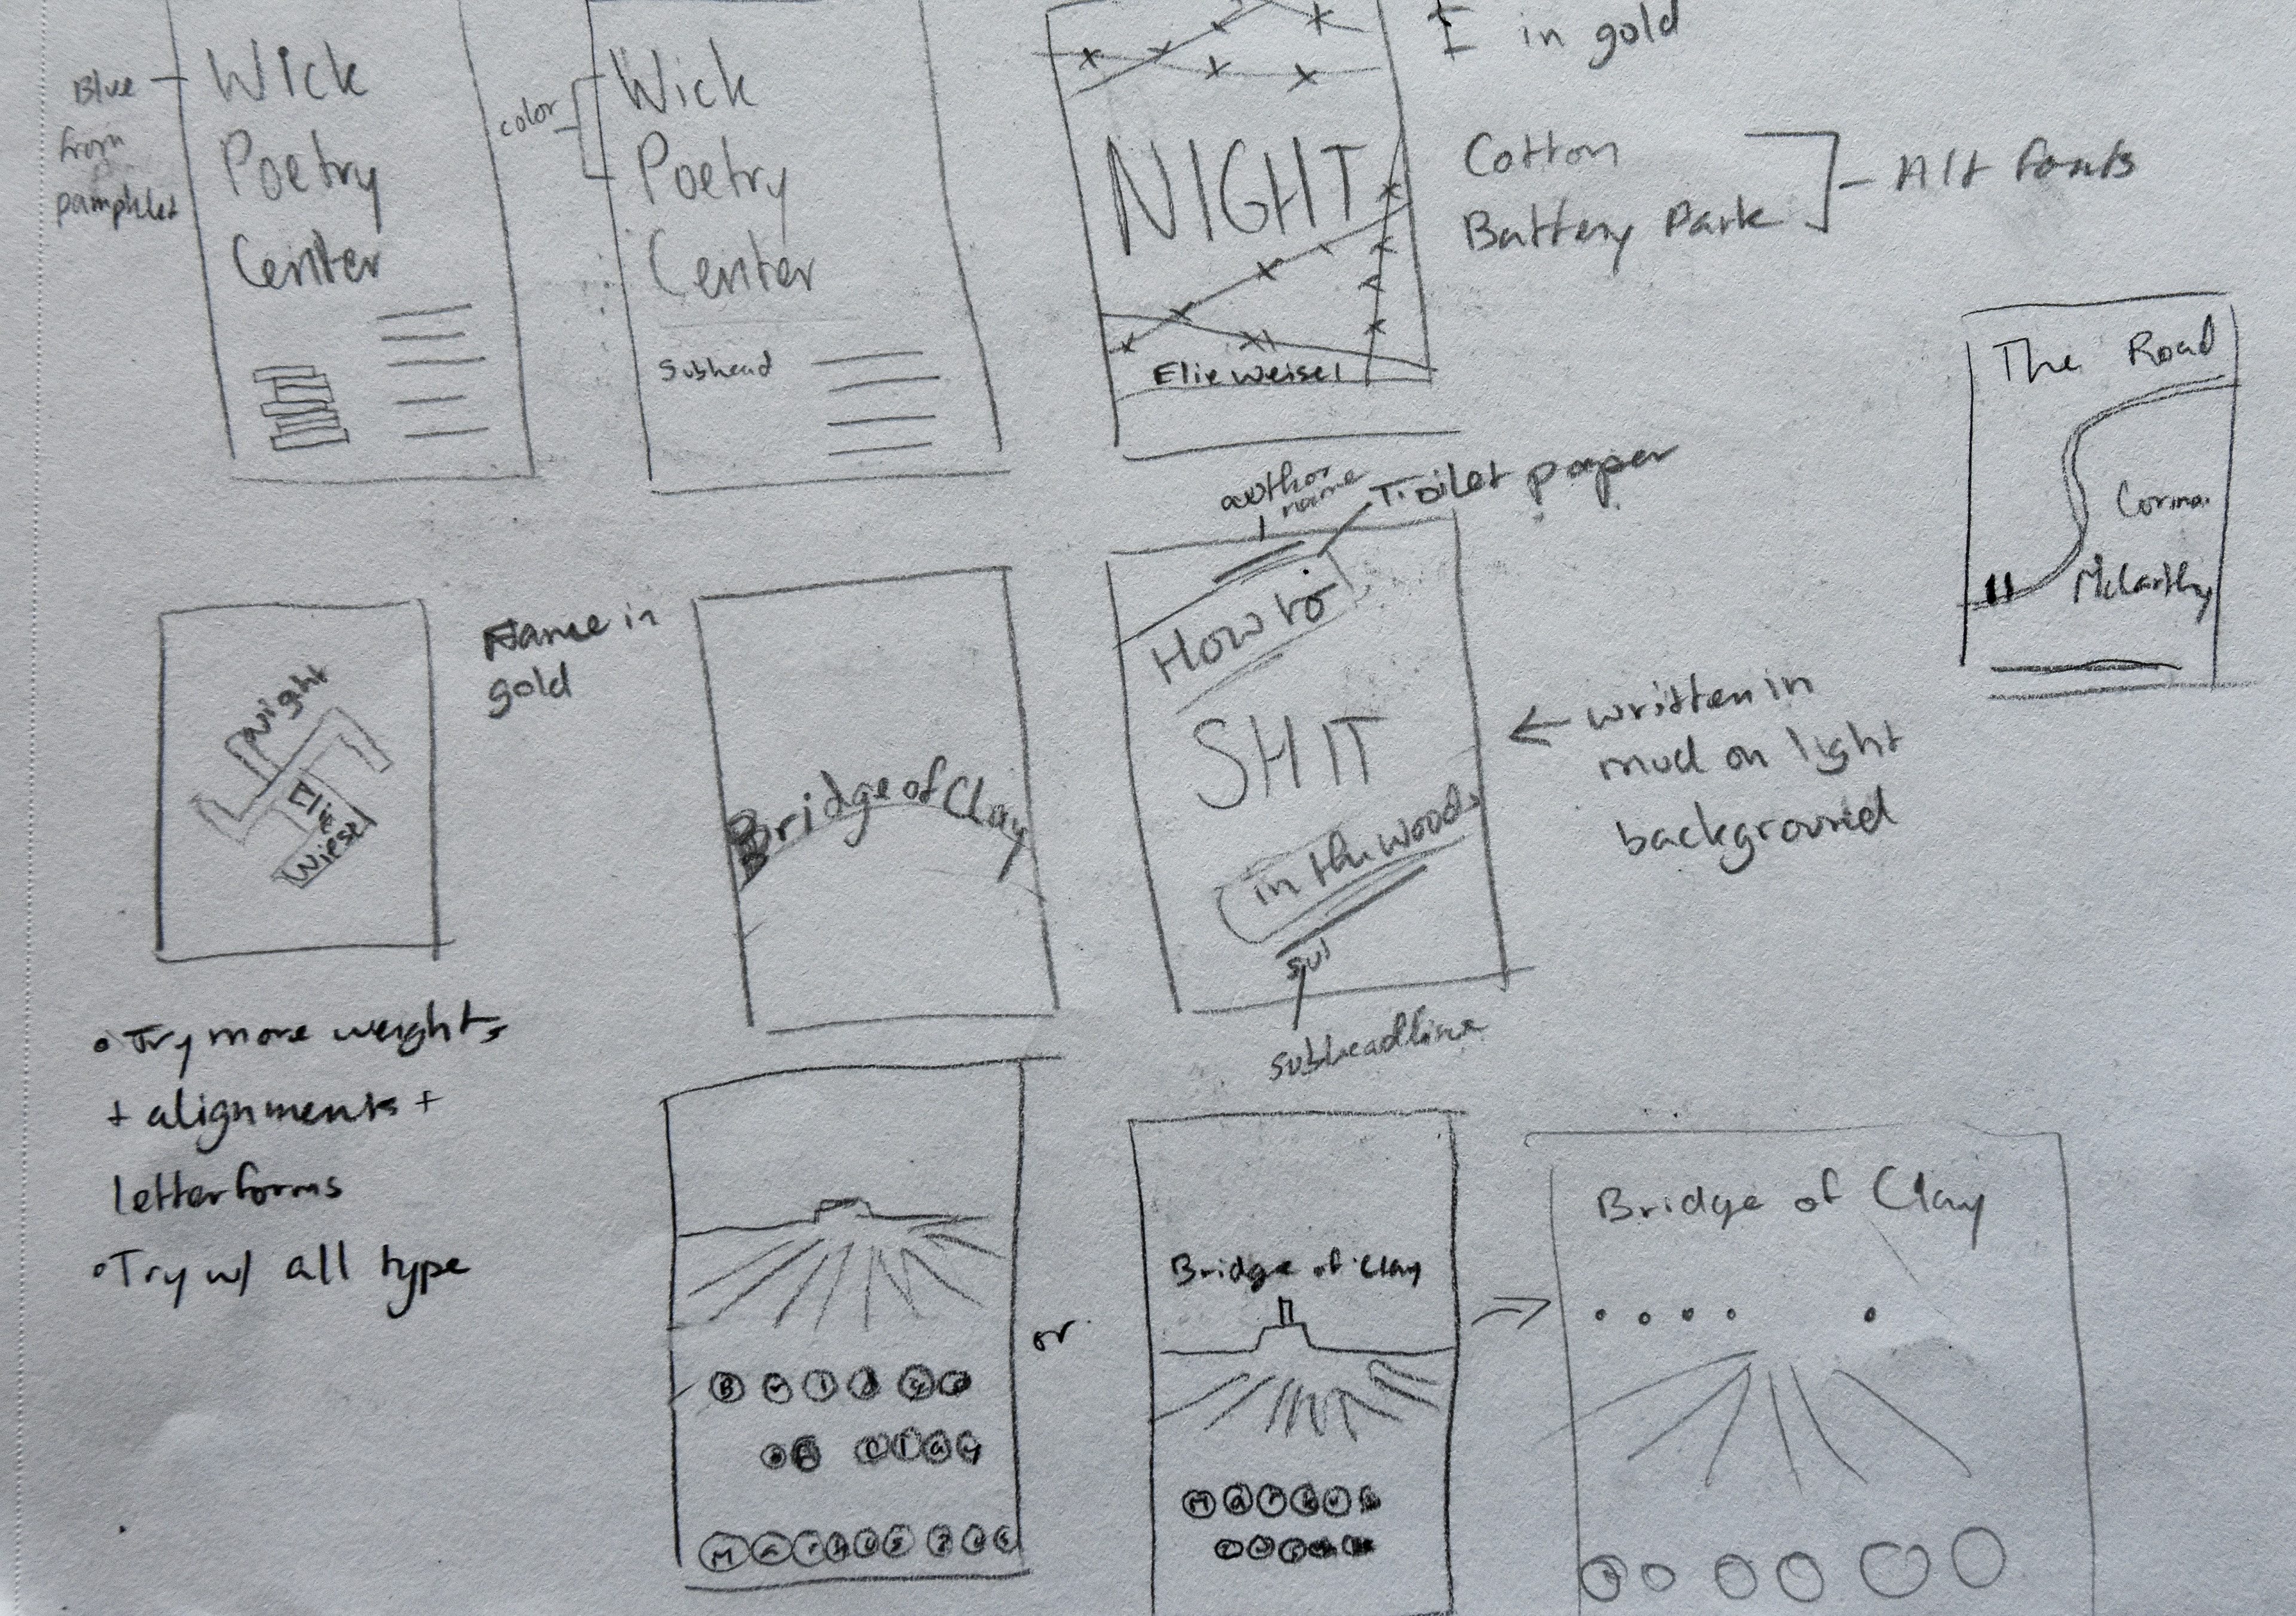 Blue
from
pamphlet
Wick
Poetry
Center
color
Wick
Poetry
Center
Subhead
NIGHT
Elie Weisel
I in gold
Cotton
Battery Park
Alt fonts
The Road
Cormac
McCarthy
Night
Elie
Wiesel
Name in
gold
Bridge of Clay
author
name
Toilet paper
How to
SHIT
in the woods
sub
subheadline
← written in
mud on light
background
• Try more weights
+ alignments +
letterforms
• Try w/ all type
Bridge
of Clay
Markus Zus
or
Bridge of Clay
Markus
Bridge of Clay